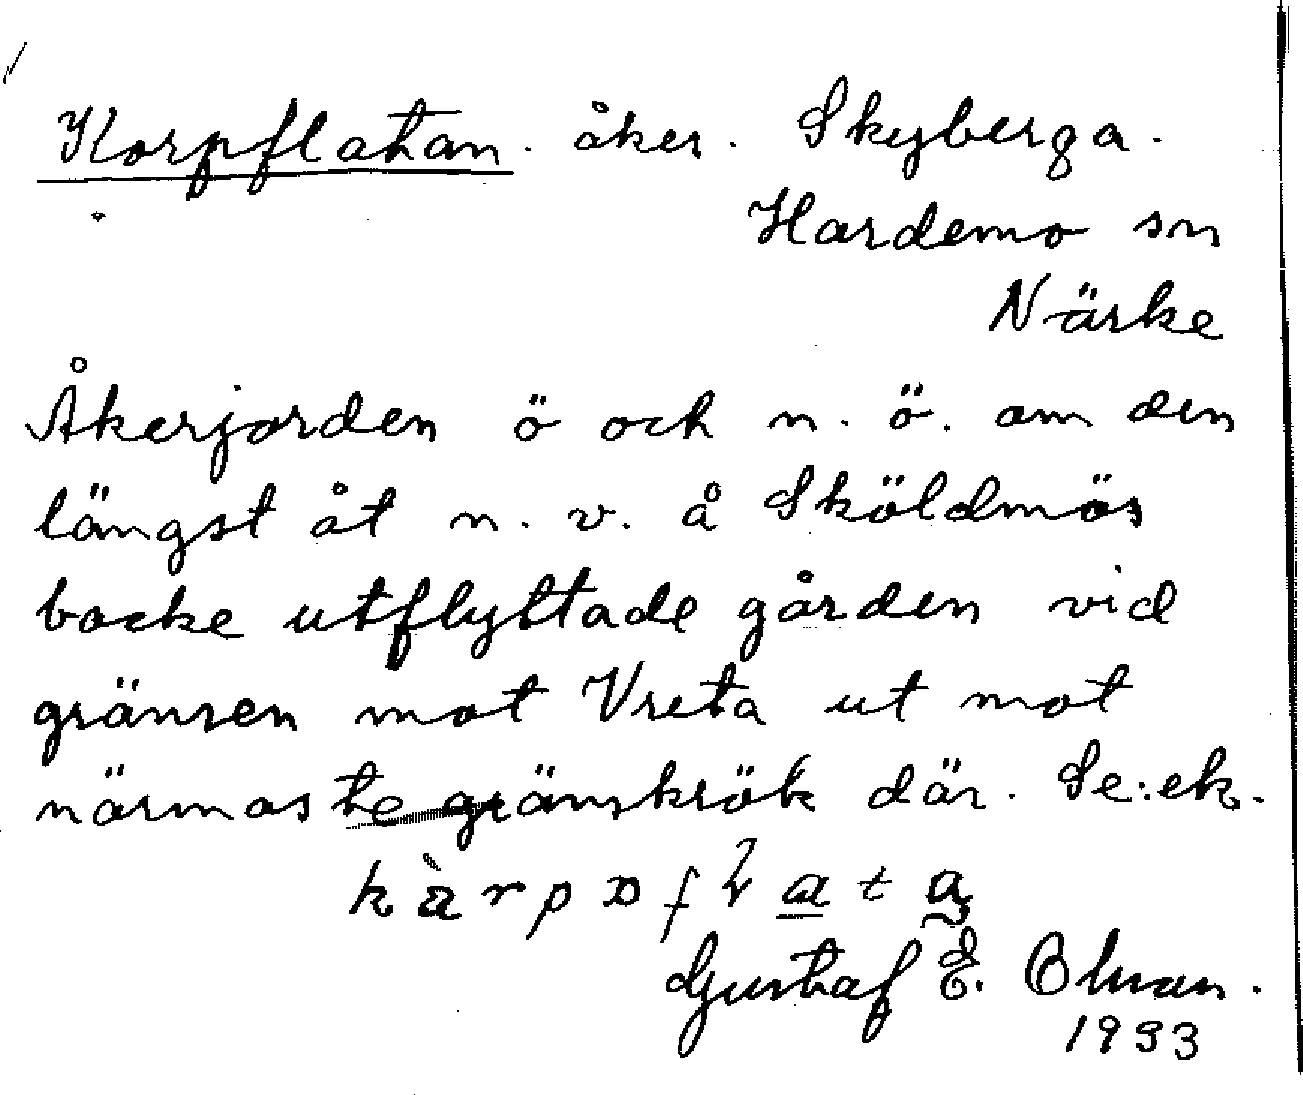 Korpflatan. åker. Skyberga.
Hardemo sn
Närke
Åkerjorden ö och n. ö. om den
längst åt n. v. å Sköldmös
backe utflyttade gården vid
gränsen mot Vreta ut mot
närmaste gränskrök där. Se: ek.
Gustaf E. Ohman.
1933